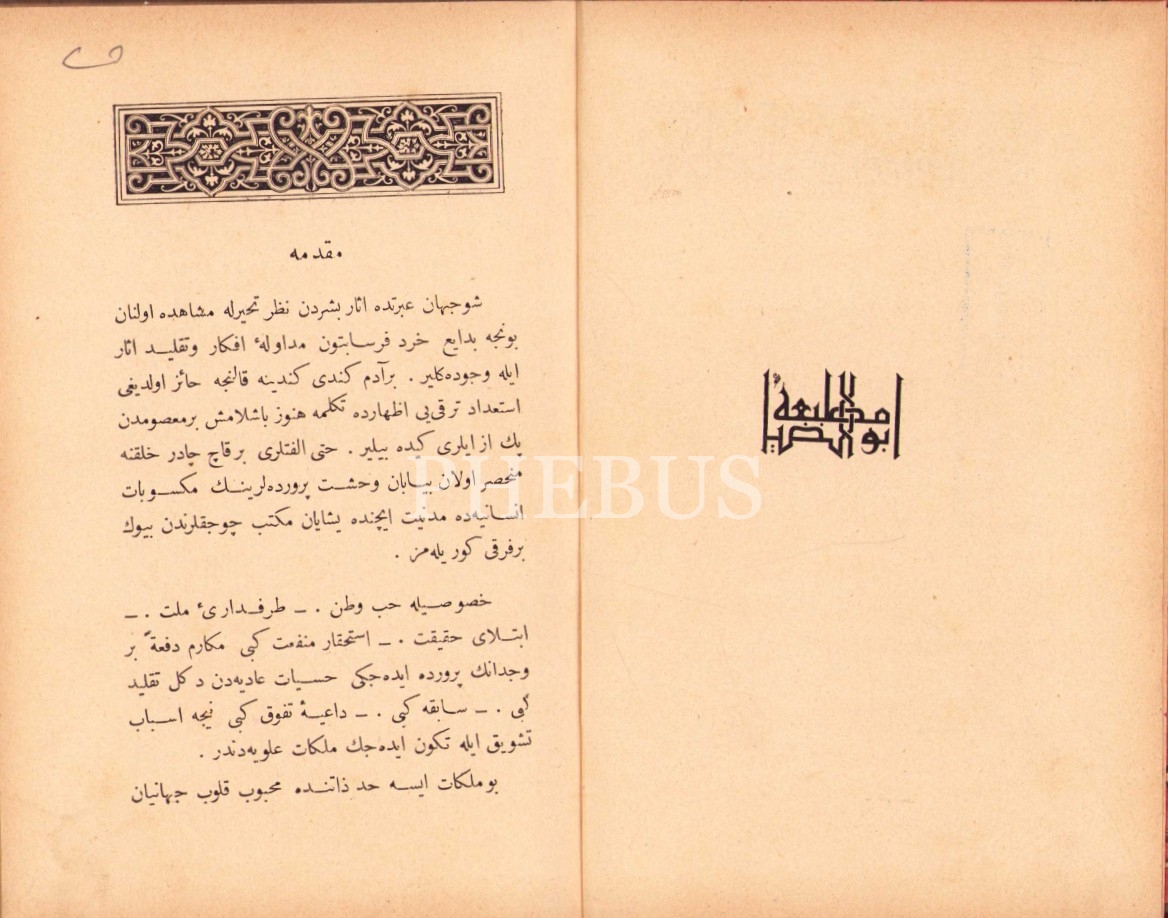 مطبعهٔ ابوالضیا
مقدمه
شوجهان عبرتده اثار بشردن نظر تحیرله مشاهده اولنان
بونجه بدایع خرد فرسابتون مداولهٔ افکار وتقلید اثار
ایله وجوده‌کلیر . برآدم کندی کندینه قالنجه حائز اولدیغی
استعداد ترقی‌یی اظهارده تکلمه هنوز باشلامش برمعصومدن
پك از ایلری کیده بیلیر . حتی الفتلری برقاچ چادر خلقنه
منحصر اولان بیابان وحشت پرورده‌لرینك مکسوبات
انسانیه‌ده مدنیت ایچنده یشایان مکتب چوجقلرندن بیوك
برفرقی کوریله‌مز .
خصوصیله حب وطن . — طرفداریٔ ملت . —
ابتلای حقیقت . — استحقار منفعت کبی مکارم دفعةً بر
وجدانك پرورده ایده‌جکی حسیات عادیه‌دن دکل تقلید
کبی . — سابقه کبی . — داعیهٔ تفوق کبی نیجه اسباب
تشویق ایله تکون ایده‌جك ملکات علویه‌دندر .
بوملکات ایسه حد ذاتنده محبوب قلوب جهانیان
PHEBUS